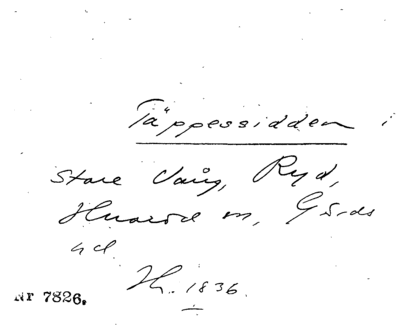 Täppessidden i
Stare Vång, Ryd,
Huaröd sn, Gärds
hd
Lh. 1836.
Nr 7826.